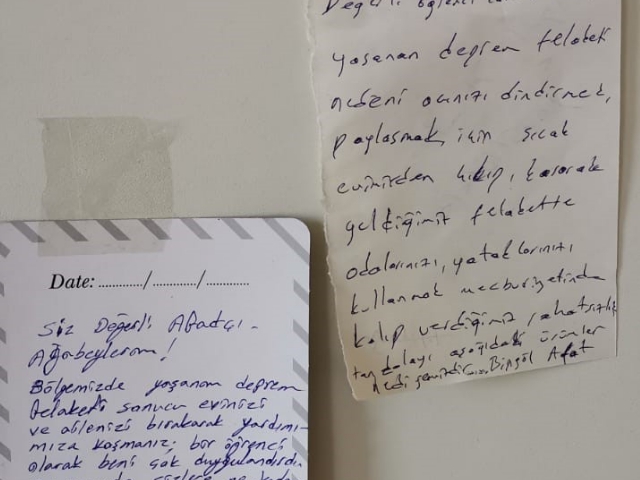 Değerli öğrenci
yaşanan deprem felaketi
nedeni acınızı dindirmek,
paylaşmak için sıcak
evimizden kalkıp, koşarak
geldiğimiz felakette
odalarınızı, yataklarınızı
kullanmak mecburiyetinde
kalıp verdiğimiz rahatsızlık
tan dolayı aşağıdaki ürünler
Bingöl Afat
Date: ............/ ............/ ............
Siz Değerli Afadçı
Ağabeylerim!
Bölgemizde yaşanan deprem
felaketi sonucu evinizi
ve ailenizi bırakarak yardımı-
mıza koşmanız; bir öğrenci
olarak beni çok duygulandırdı